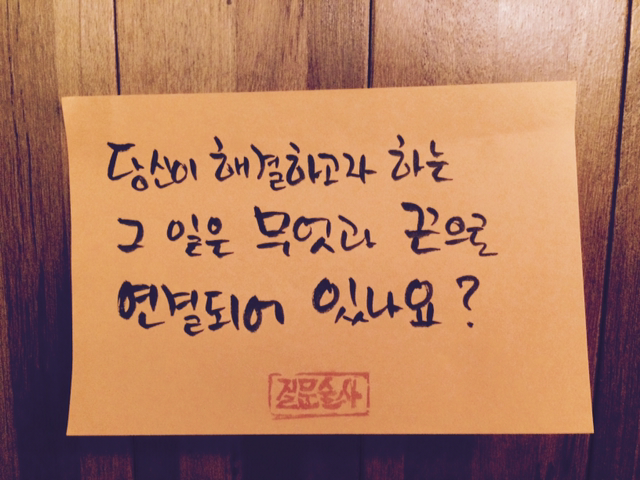 당신이 해결하고자 하는
그 일은 무엇과 끈으로
연결되어 있나요?
질문술사